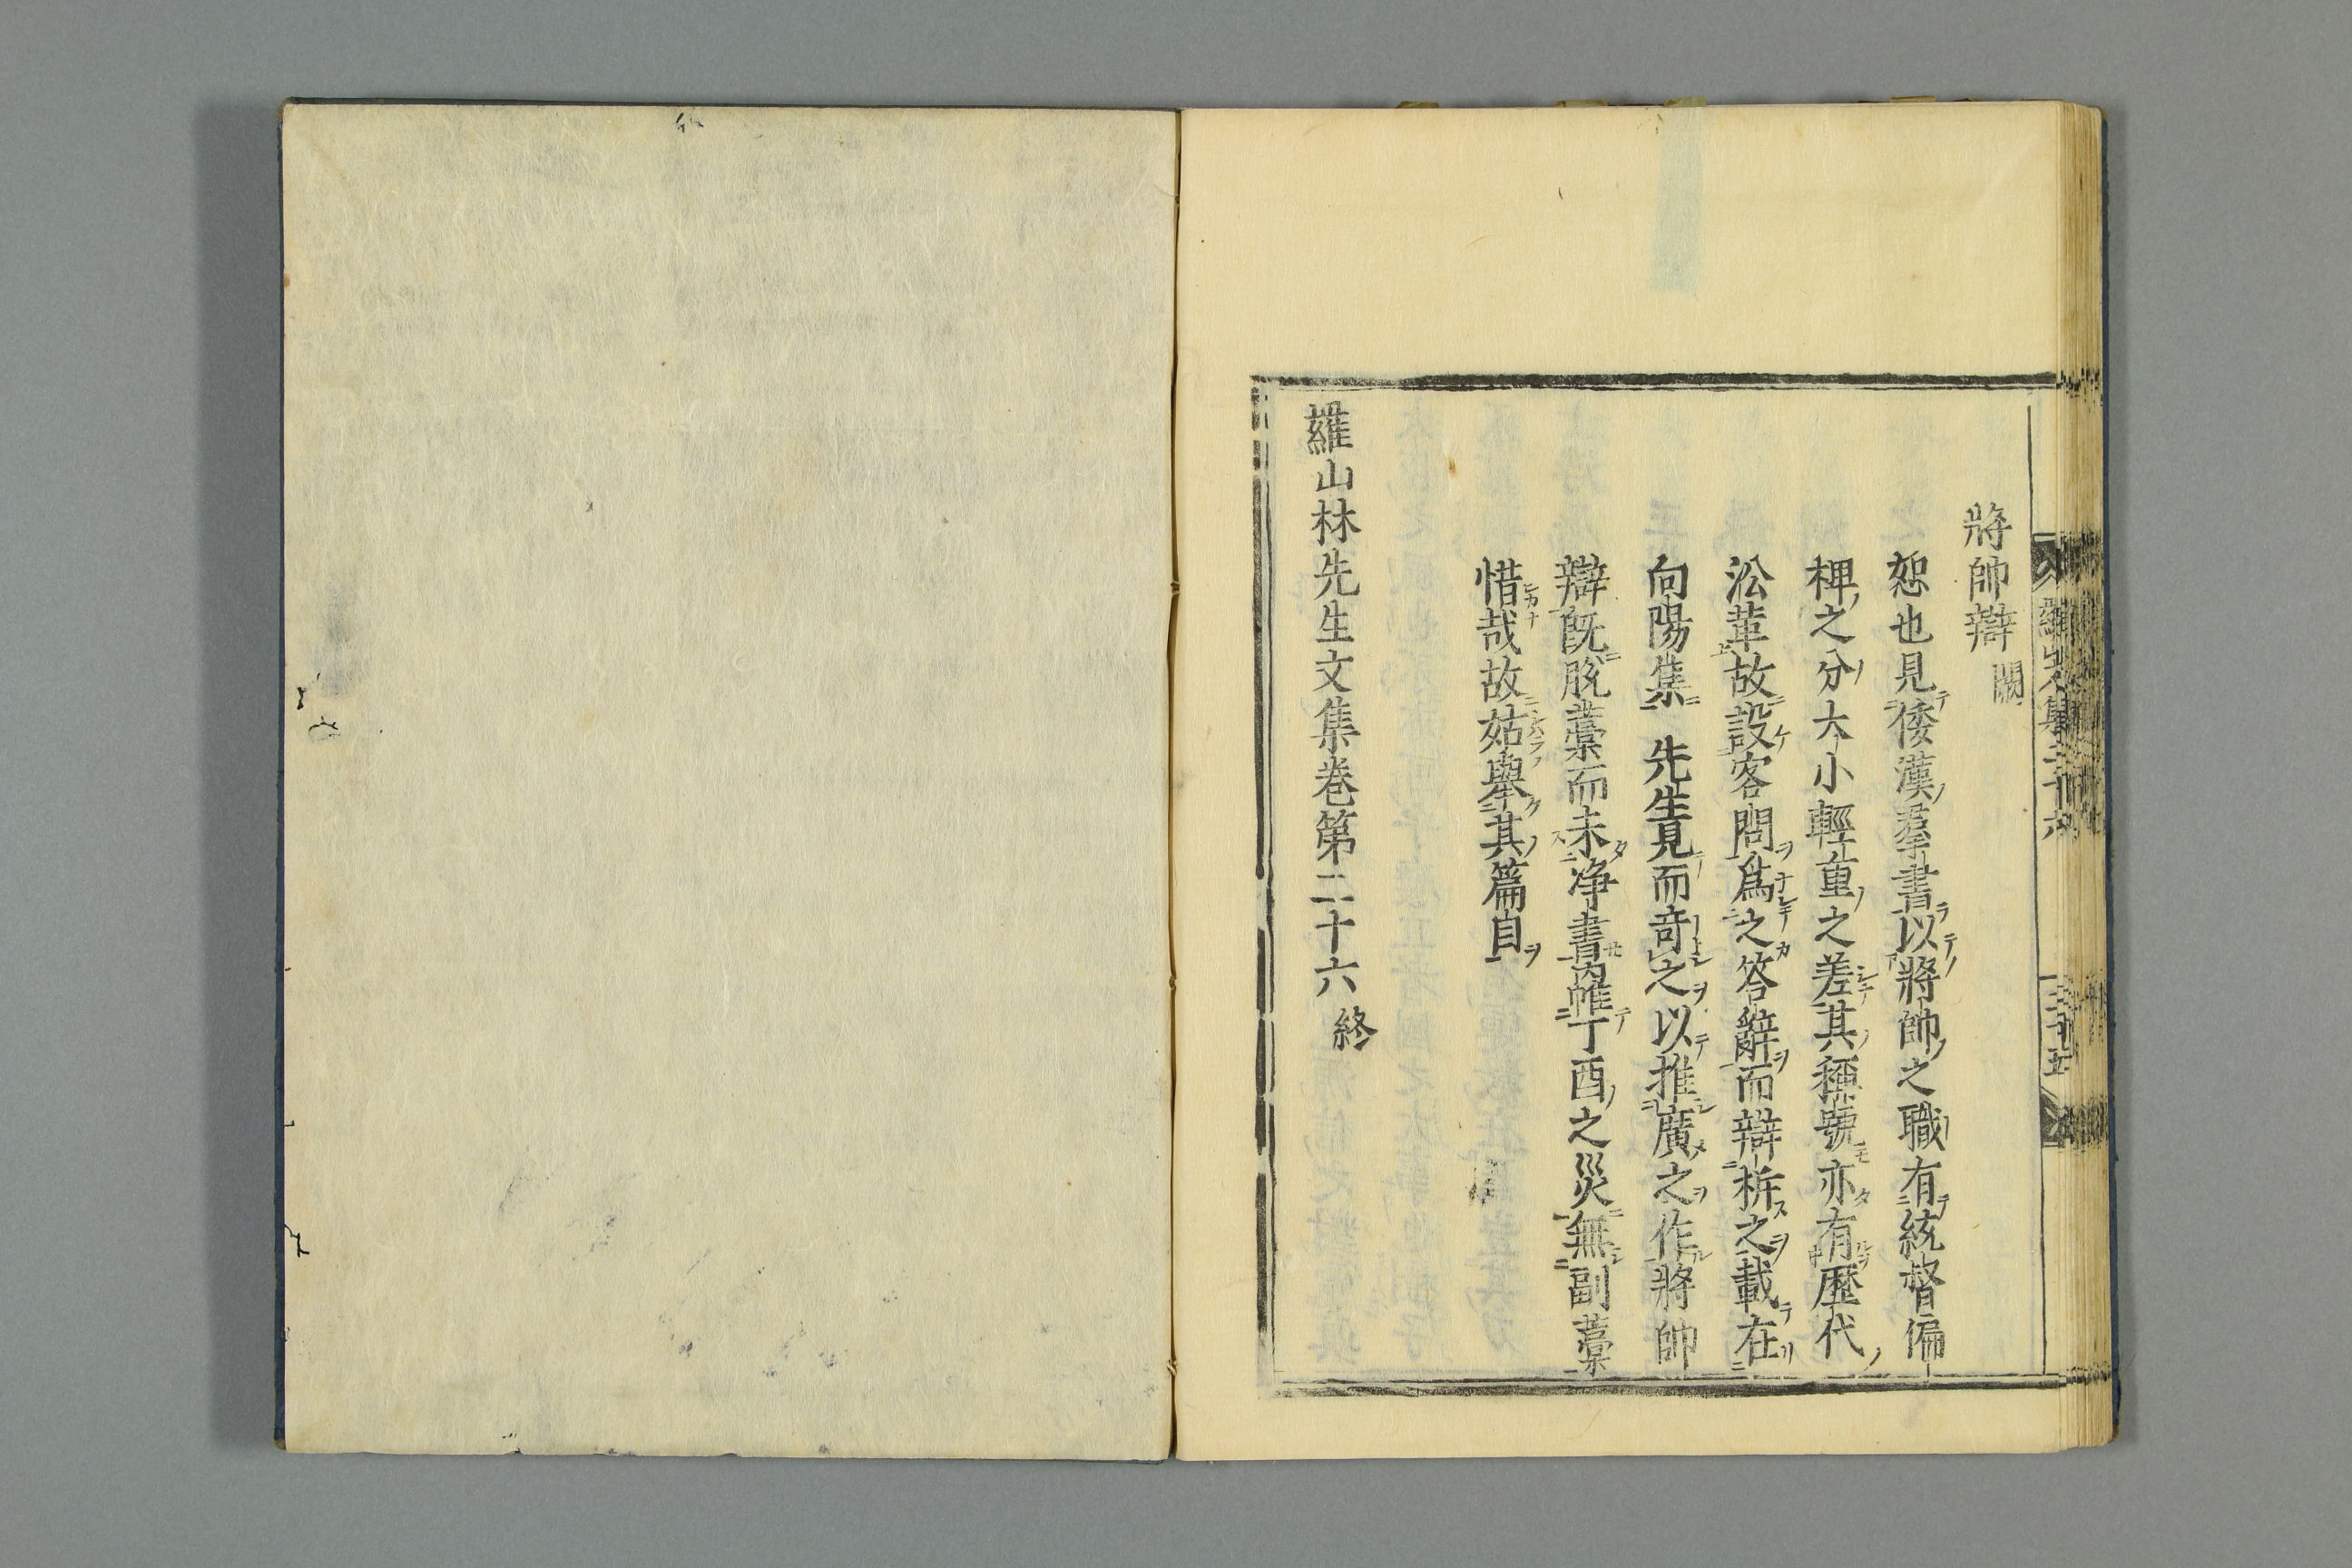 將帥辯 闕
恕也見倭漢羣書以將帥之職有統督偏
裨之分大小輕重之差其稱號亦有歷代
沿革故設客問爲之答辭而辯析之載在
向陽集 先生見而奇之以推廣之作將帥
辯既脫藁而未淨書內罹丁酉之災無副藁
惜哉故姑舉其篇目
羅山林先生文集卷第二十六 終